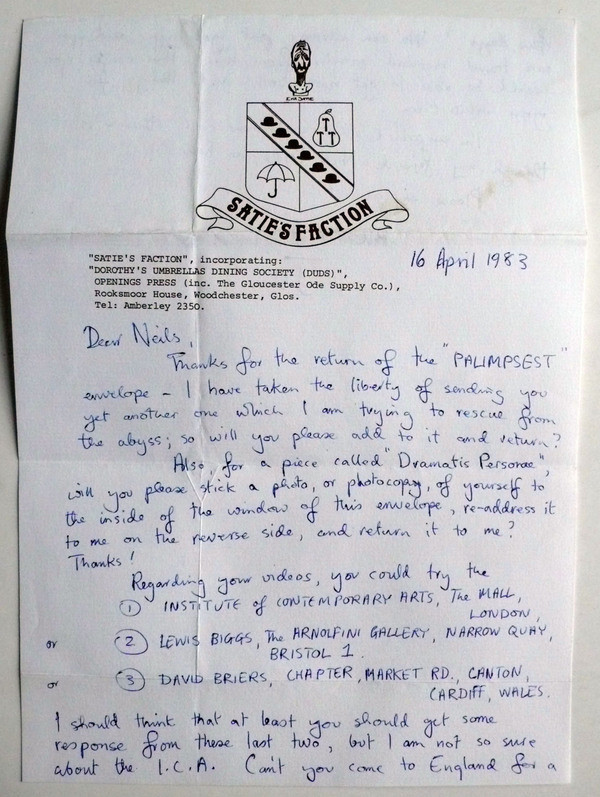 ERIK SATIE
T
T T
SATIE'S FACTION
16 April 1983
"SATIE'S FACTION", incorporating:
"DOROTHY'S UMBRELLAS DINING SOCIETY (DUDS)",
OPENINGS PRESS (inc. The Gloucester Ode Supply Co.),
Rooksmoor House, Woodchester, Glos.
Tel: Amberley 2350.
Dear Neils,
Thanks for the return of the "PALIMPSEST"
envelope – I have taken the liberty of sending you
yet another one which I am trying to rescue from
the abyss; so will you please add to it and return?
Also, for a piece called "Dramatis Personae",
will you please stick a photo, or photocopy, of yourself to
the inside of the window of this envelope, re-address it
to me on the reverse side, and return it to me?
Thanks!
Regarding your videos, you could try the
① INSTITUTE of CONTEMPORARY ARTS, The MALL,
LONDON,
or ② LEWIS BIGGS, The ARNOLFINI GALLERY, NARROW QUAY,
BRISTOL 1.
or ③ DAVID BRIERS, CHAPTER, MARKET RD., CANTON,
CARDIFF, WALES.
I should think that at least you should get some
response from these last two, but I am not so sure
about the I.C.A. Can't you come to England for a